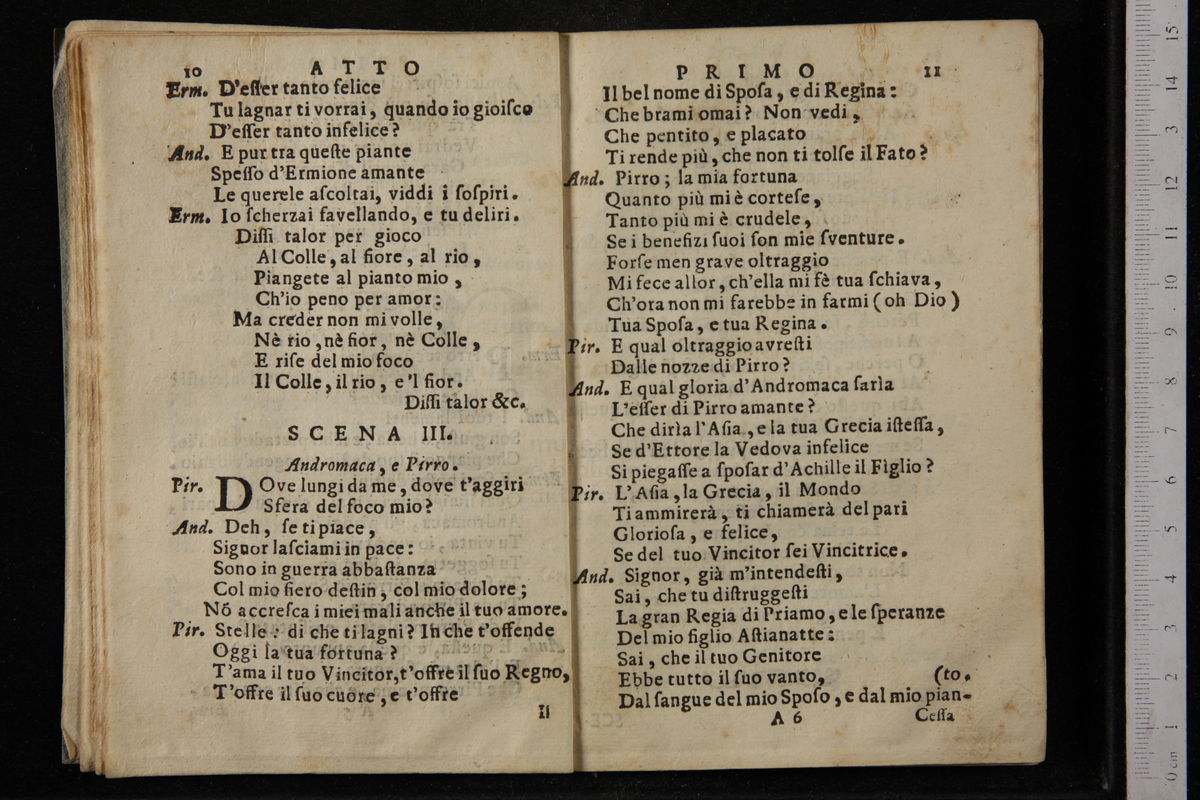 10 ATTO
Erm. D'eſſer tanto felice
Tu lagnar ti vorrai, quando io gioiſco
D'eſſer tanto infelice?
And. E pur tra queſte piante
Speſſo d'Ermione amante
Le querele aſcoltai, viddi i ſoſpiri.
Erm. Io ſcherzai favellando, e tu deliri.
Diſſi talor per gioco
Al Colle, al fiore, al rio,
Piangete al pianto mio,
Ch'io peno per amor:
Ma creder non mi volle,
Nè rio, nè fior, nè Colle,
E riſe del mio foco
Il Colle, il rio, e'l fior.
Diſſi talor &c.
SCENA III.
Andromaca, e Pirro.
Pir. DOve lungi da me, dove t'aggiri
Sfera del foco mio?
And. Deh, ſe ti piace,
Signor laſciami in pace:
Sono in guerra abbaſtanza
Col mio fiero deſtin, col mio dolore;
Nõ accreſca i miei mali anche il tuo amore.
Pir. Stelle: di che ti lagni? In che t'offende
Oggi la tua fortuna?
T'ama il tuo Vincitor, t'offre il ſuo Regno,
T'offre il ſuo cuore, e t'offre
Il
PRIMO 11
Il bel nome di Spoſa, e di Regina:
Che brami omai? Non vedi,
Che pentito, e placato
Ti rende più, che non ti tolſe il Fato?
And. Pirro; la mia fortuna
Quanto più mi è corteſe,
Tanto più mi è crudele,
Se i benefizi ſuoi ſon mie ſventure.
Forſe men grave oltraggio
Mi fece allor, ch'ella mi fè tua ſchiava,
Ch'ora non mi farebbe in farmi (oh Dio)
Tua Spoſa, e tua Regina.
Pir. E qual oltraggio avreſti
Dalle nozze di Pirro?
And. E qual gloria d'Andromaca ſarìa
L'eſſer di Pirro amante?
Che dirìa l'Aſia, e la tua Grecia iſteſſa,
Se d'Ettore la Vedova infelice
Si piegaſſe a ſpoſar d'Achille il Figlio?
Pir. L'Aſia, la Grecia, il Mondo
Ti ammirerà, ti chiamerà del pari
Glorioſa, e felice,
Se del tuo Vincitor ſei Vincitrice.
And. Signor, già m'intendeſti,
Sai, che tu diſtruggeſti
La gran Regia di Priamo, e le ſperanze
Del mio figlio Aſtianatte:
Sai, che il tuo Genitore
Ebbe tutto il ſuo vanto, (to.
Dal ſangue del mio Spoſo, e dal mio pian-
A 6 Ceſſa
15
14
13
12
11
10
9
8
7
6
5
4
3
2
1
0 cm